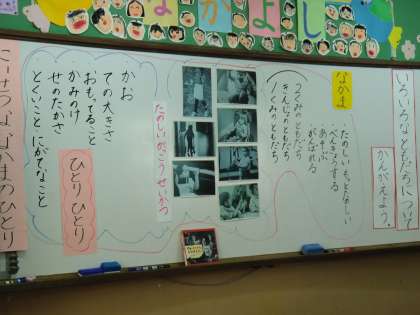 なかよし
いろいろなともだちについて
かんがえよう。
なかま
たのしい もっとたのしい
べんきょうする
あそぶ
がんばれる
2くみのともだち
きんじょのともだち
1くみのともだち
たのしいがっこうせいかつ
かお
ての大きさ
おもってること
かみのけ
せのたかさ
とくいなこと にがてなこと
ひとりひとり
たいせつななかまのひとり